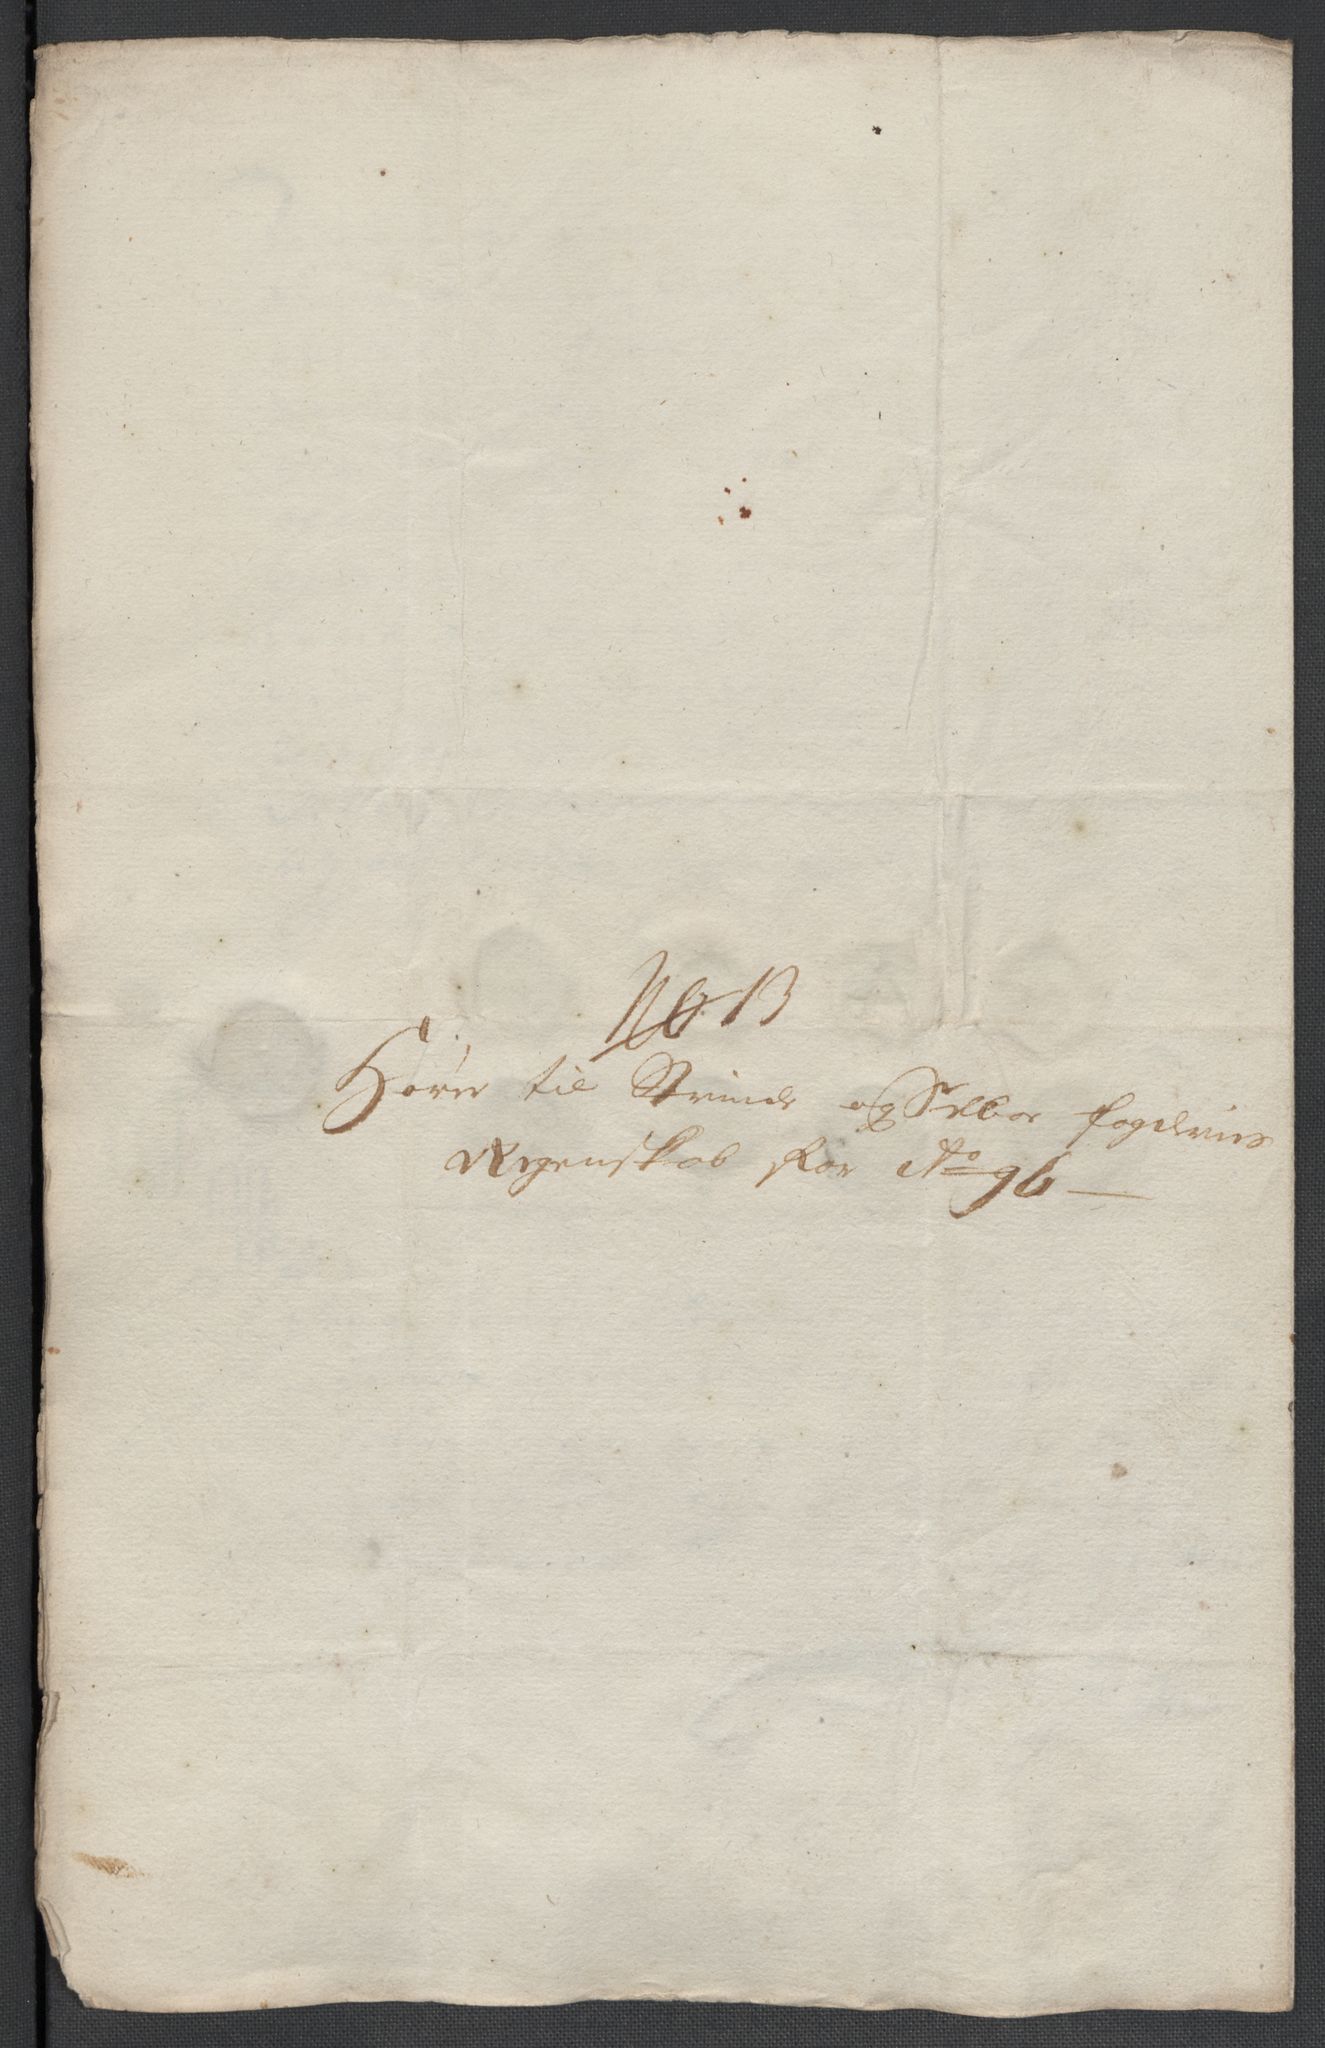 No 13
Hører til Strinde og Selboe fogderies
Regenskab for Ao 96